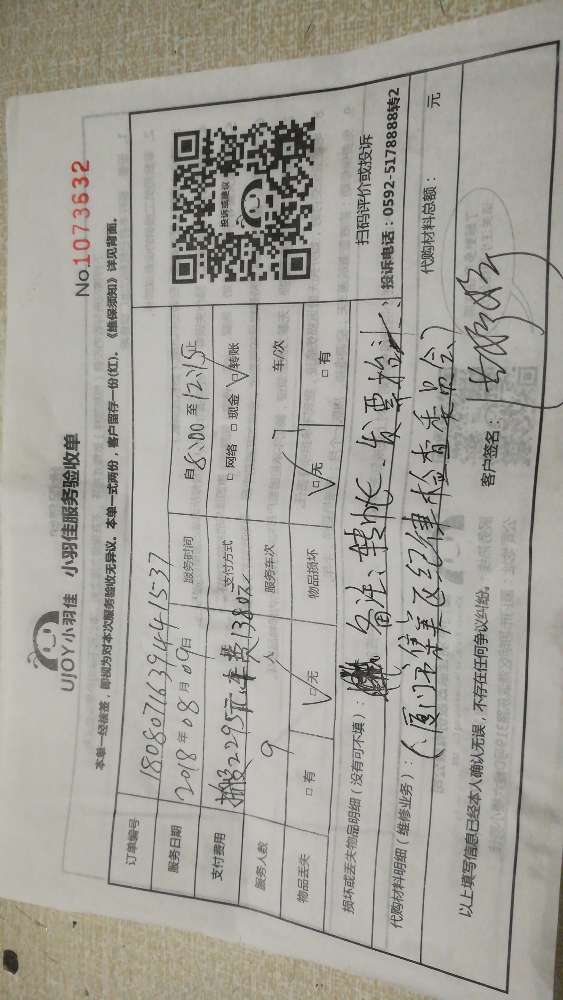 UJOY小羽佳 小羽佳服务验收单
No.1073632
本单一经核签，即视为对本次服务验收无异议。本单一式两份，客户留存一份(红)。《维保须知》详见背面。
订单编号 180807163944 1537
服务日期 2018年08月09日 服务时间 自8:00至12:15止
支付费用 搬运2295元.车费1380元 支付方式 □网络 □现金 □转账
服务人数 9人 服务车次 7车/次
物品丢失 □有 □无 物品损坏 □无 □有
投诉或建议
扫码评价或投诉
投诉电话：0592-5178888转2
损坏或丢失物品明细（没有可不填）： 备注：转账、发票抬头、
代购材料明细（维修业务）： （厦门市集美区纪律检查委员会）
代购材料总额： 元
以上填写信息已经本人确认无误，不存在任何争议纠纷。
客户签名：